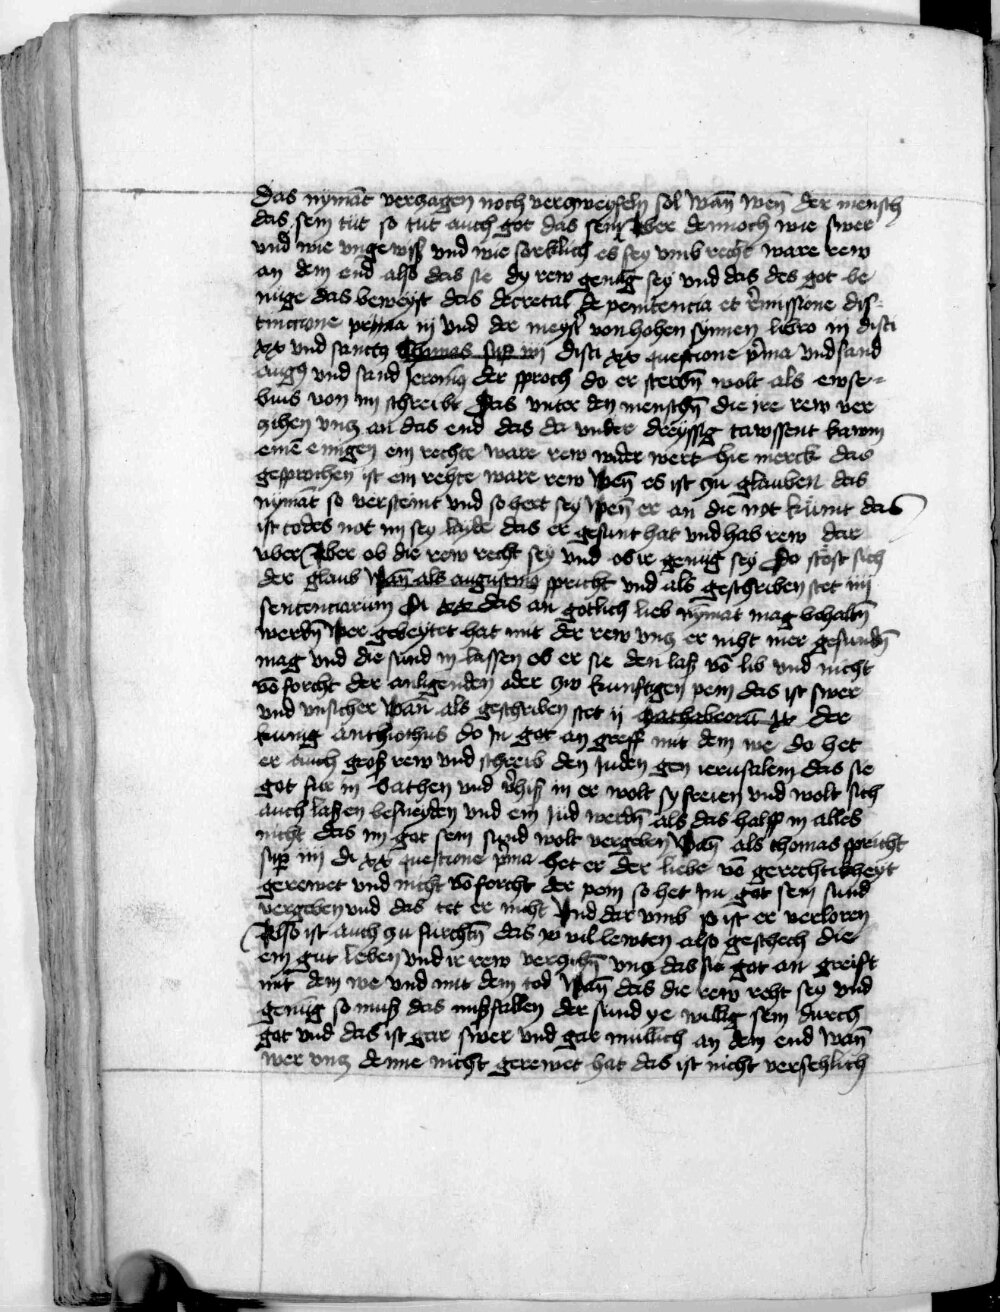 das nymāt verzagen noch verzweyfeln sol wan̄ wen̄ der mensch
das sein tüt so tüt auch got das sein Aber dennoch wie swer
vnd wie vngewiſß vnd wie sorklich es sey vmb recht ware rew
an dem end also das sie dy rew genüg sey vnd das des got be
nüge das beweyst das decretal de penitencia et r̄emissione dis-
tinccione prima iij vnd der meyst̄ von hohen synnen libro iiij disti
xx vnd sanctꝯ Thomas sup̱ iiij disti xx questione p̄ma vnd sand
augꝯ vnd sand Jeronimꝯ der sproch do er sterbn̄ wolt als ewse-
bius von im schreibt Das vnter den menschn̄ die ire rew ver
zihen vnꝫ an das end das da vnder dreyssig tawssent kawm
einē einigen ein rechte ware rew wider wert hie merck das
gesprochen ist ein rehte ware rew Wen̄ es ist zu glauben das
nymāt so versteint vnd so hert sey Wen̄ er an die not kūmt das
ist todes not im sey layde das er gesunt hat vnd hab rew dar
vber Aber ob die rew recht sey vnd ob ir genüg sey Do stöst sich
der glaub Wan̄ als augustinꝯ spricht vnd als geschriben stet iiij
sentenciarum Di xx das an gotlich lieb nymāt mag behaltn̄
werdn̄ Wer gebeytet hat mit der rew vnꝫ er niht mer gesundn̄
mag vnd die sünd in lassen ob er sie den laß vō lib vnd nicht
vō forcht der anligenden oder zw kunftigen pein das ist swer
vnd vnsicher Wan̄ als geschriben stet ij Machabeorū ix der
kunig anthiochus do in got an greff mit dem we do het
er auch groß rew vnd schreib den Juden gen ierusalem das sie
got fur in bathen vnd v̄hiß in er wolt sy freien vnd wolt sich
auch lassen besneyden vnd ein Jud werdn̄ als das halff in alles
nicht das im got sein sünd wolt vergeben Wan̄ als thomas spricht
sup̱ iiij di xx questione p̄ma Het er der liebe vō gerechtikheyt
gerewet vnd nicht vō forcht der pein so het im got sein sünd
vergeben vnd das tet er nicht Vnd dar vmb so ist er verloren
Also ist auch zu furchtn̄ das vil lewten also geschech die
ein gut leben vnd ir rew verzihn̄ vnꝫ das sie got an greift
mit dem we vnd mit dem tod Wan̄ das die rew reht sey vnd
genüg so muß das mißfallen der sund ye willig sein durch
got vnd das ist gar swer vnd gar mullich an dem end Wan̄
wer vnꝫ denne nicht gerewet hat das ist nicht versehlich